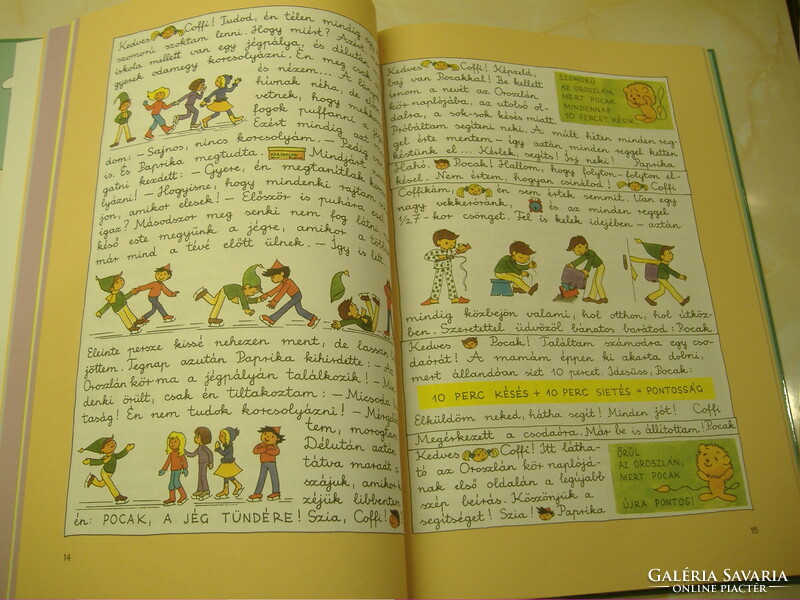 Kedves Coffi! Tudod, én télen mindig
szomorú szoktam lenni. Hogy miért? Azért
iskola mellett van egy jégpálya, és délután
gyerek odamegy korcsolyázni. Én meg csak
és nézem... A lányok
hívnak néha, de
vetnek, hogy
fogok puffanni a
Ezért mindig azt
dom: – Sajnos, nincs korcsolyám. – Pedig
is. És Paprika megtudta. Mindjárt
gatni kezdett: – Gyere, én megtanítlak
lyázni! – Hogyisne, hogy mindenki rajtam
jon, amikor elesek! – Először is puhára esel
igaz? Másodszor meg senki nem fog látni,
késő este megyünk a jégre, amikor a több
már mind a tévé előtt ülnek. – Így is lett.
Eleinte persze kissé nehezen ment, de lassan
jöttem. Tegnap azután Paprika kihirdette: – Az
Oroszlán kör ma a jégpályán találkozik! –
denki örült, csak én tiltakoztam: – Micsoda
taság! Én nem tudok korcsolyázni! –
tem, morogtam.
Délután aztán
tátva maradt a
szájuk, amikor
zéjük libbentem
én: POCAK, A JÉG TÜNDÉRE! Szia, Coffi!
14
Kedves Coffi! Képzeld,
baj van Pocakkal! Be kellett
írnom a nevét az Oroszlán
kör naplójába, az utolsó ol-
dalra, a sok-sok késés miatt.
Próbáltam segíteni neki. A múlt héten minden reg-
gel érte mentem – így aztán minden reggel ketten
késtünk el... Kérlek, segíts! Írj neki! Paprika
SZOMORÚ
AZ OROSZLÁN,
MERT POCAK
MINDENNAP
10 PERCET KÉSIK
Halló, Pocak! Hallom, hogy folyton-folyton el-
késel. Nem értem, hogyan csinálod! Coffi
Coffikám, én sem értek semmit. Van egy
nagy vekkeróránk, és az minden reggel
1/27-kor csönget. Fel is kelek idejében – aztán
mindig közbejön valami, hol otthon, hol útköz-
ben. Szeretettel üdvözöl bánatos barátod: Pocak
Kedves Pocak! Találtam számodra egy cso-
daórát! A mamám éppen ki akarta dobni,
mert állandóan siet 10 percet. Idesüss, Pocak:
10 PERC KÉSÉS + 10 PERC SIETÉS = PONTOSSÁG
Elküldöm neked, hátha segít! Minden jót! Coffi
Megérkezett a csodaóra. Már be is állítottam! Pocak
Kedves Coffi! Itt látha-
tó az Oroszlán kör naplójá-
nak első oldalán a legújabb
szép beírás. Köszönjük a
segítséget! Szia! Paprika
ÖRÜL
AZ OROSZLÁN,
MERT POCAK
ÚJRA PONTOS!
15
GALÉRIA SAVARIA
ONLINE PIACTÉR